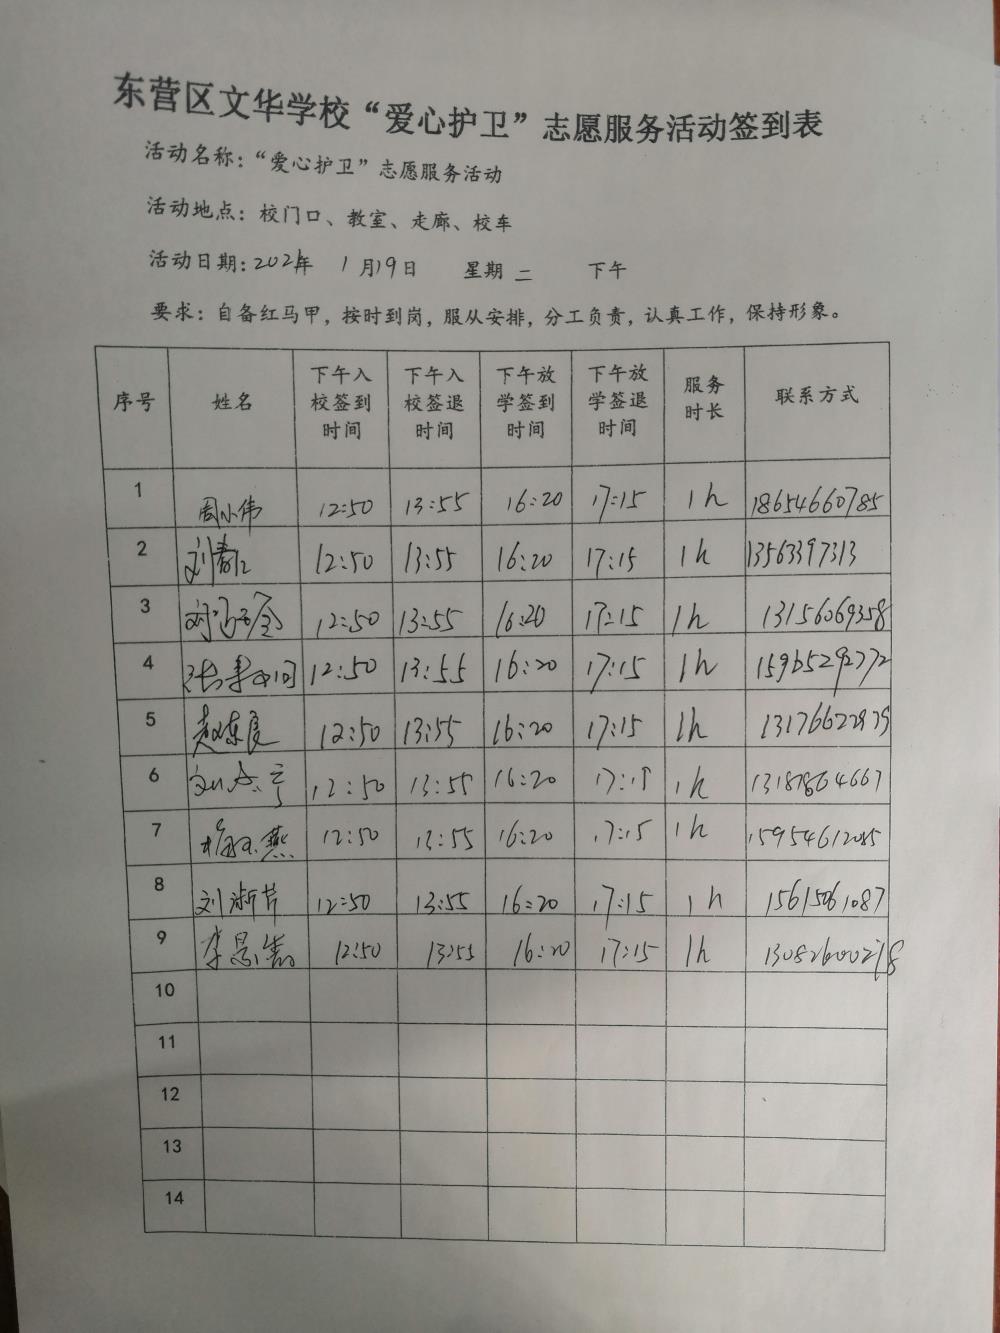 东营区文华学校“爱心护卫”志愿服务活动签到表
活动名称：“爱心护卫”志愿服务活动
活动地点：校门口、教室、走廊、校车
活动日期：2021年 1月19日 星期 二 下午
要求：自备红马甲，按时到岗，服从安排，分工负责，认真工作，保持形象。
序号 姓名 下午入校签到时间 下午入校签退时间 下午放学签到时间 下午放学签退时间 服务时长 联系方式
1 周小伟 12:50 13:55 16:20 17:15 1h 18654660785
2 刘 12:50 13:55 16:20 17:15 1h 13563397313
3 刘 12:50 13:55 16:20 17:15 1h 13156069358
4 12:50 13:55 16:20 17:15 1h 15965292772
5 赵 12:50 13:55 16:20 17:15 1h
6 12:50 13:55 16:20 1h
7 燕 12:50 13:55 16:20 17:15 1h
8 刘淑芹 12:50 13:55 16:20 17:15 1h 15615061087
9 李景 12:50 13:55 16:20 17:15 1h 13082600278
10
11
12
13
14